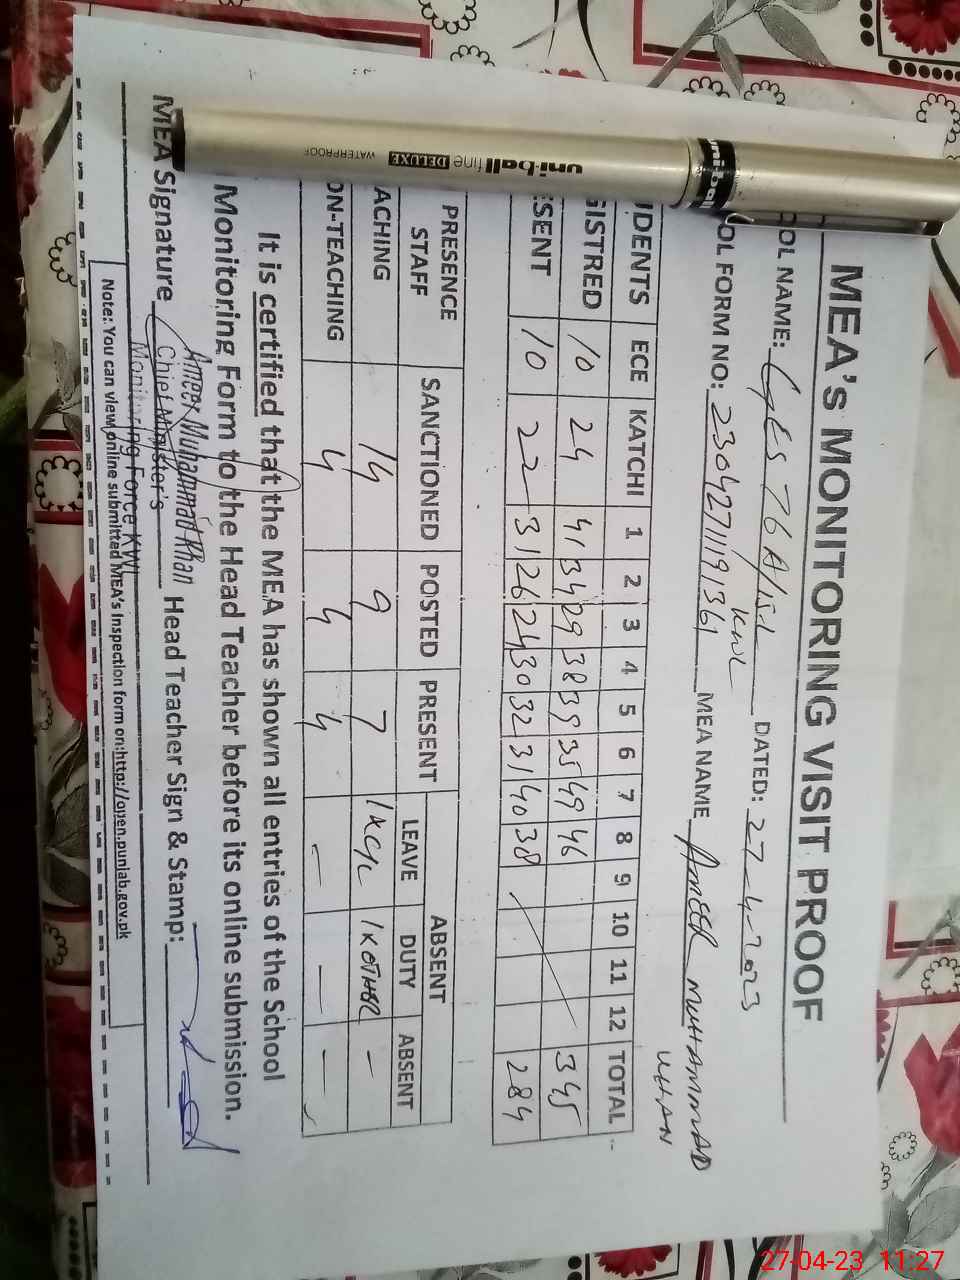 MEA'S MONITORING VISIT PROOF
OOL NAME: GGES 76 A/ DATED: 27-4-2023
KWL
OOL FORM NO: 23042711191361 MEA NAME AMEER MUHAMMAD
KHAN
UDENTS ECE KATCHI 1 2 3 4 5 6 7 8 9 10 11 12 TOTAL
GISTRED 10 24 41 34 29 38 39 35 49 46 345
ESENT 10 22 31 26 24 30 32 31 40 38 284
PRESENCE STAFF SANCTIONED POSTED PRESENT ABSENT
LEAVE DUTY ABSENT
ACHING 14 9 7 1 1 OTHER –
ON-TEACHING 4 4 4 – – –
It is certified that the MEA has shown all entries of the School
Monitoring Form to the Head Teacher before its online submission.
MEA Signature Head Teacher Sign & Stamp:
Ameer Muhammad Khan
Chief Minister's
Monitoring Force KWL
Note: You can view online submitted MEA's Inspection form on:http://open.punjab.gov.pk
uni-ball
uni-ball fine DELUXE
WATERPROOF
27-04-23 11:27